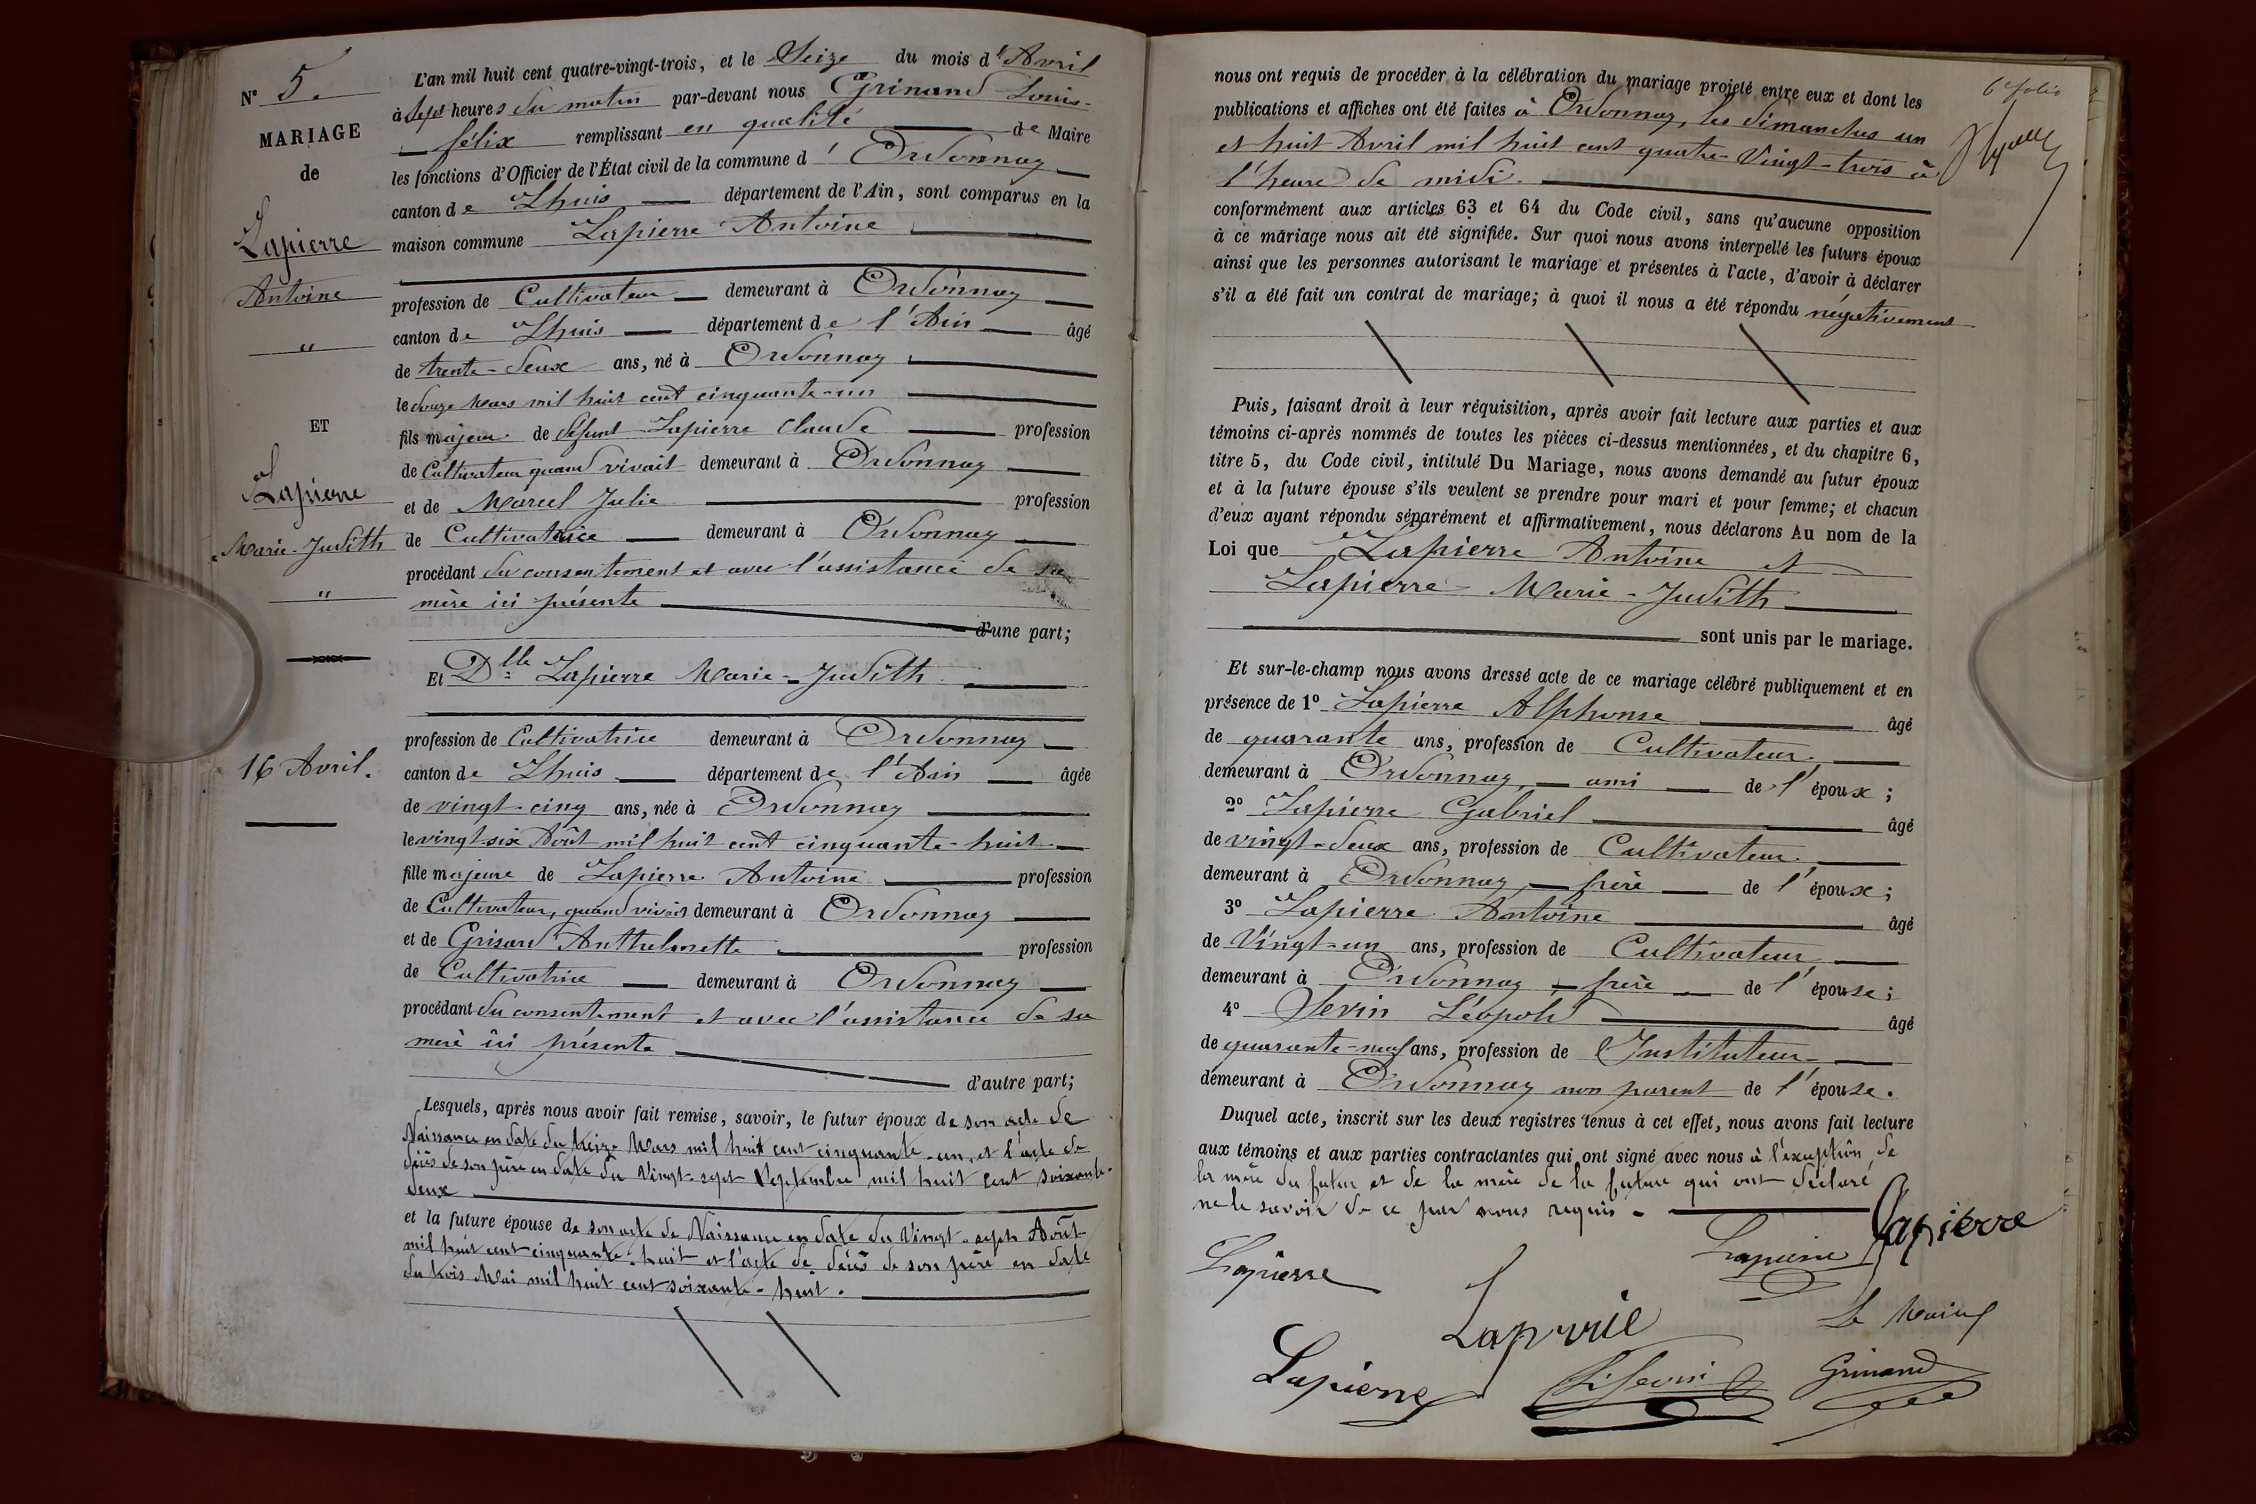 N° 5.
MARIAGE
de
Lapierre
Antoine
"
ET
Lapierre
Marie-Judith
"
16 Avril.
L'an mil huit cent quatre-vingt-trois, et le Seize du mois d'Avril
à Sept heures du matin par-devant nous Grinand Louis-
félix remplissant en qualité de Maire
les fonctions d'Officier de l'État civil de la commune d'Ordonnaz
canton de Lhuis département de l'Ain, sont comparus en la
maison commune Lapierre Antoine
profession de Cultivateur demeurant à Ordonnaz
canton de Lhuis département de l'Ain âgé
de trente-deux ans, né à Ordonnaz
le douze Mars mil huit cent cinquante-un
fils majeur de défunt Lapierre Claude profession
de Cultivateur quand vivait demeurant à Ordonnaz
et de Marcel Julie profession
de Cultivatrice demeurant à Ordonnaz
procédant du consentement et avec l'assistance de sa
mère ici présente
d'une part;
Et Dlle Lapierre Marie-Judith
profession de Cultivatrice demeurant à Ordonnaz
canton de Lhuis département de l'Ain âgée
de vingt-cinq ans, née à Ordonnaz
le vingt-six Août mil huit cent cinquante-huit
fille majeure de Lapierre Antoine profession
de Cultivateur, quand vivait demeurant à Ordonnaz
et de Grisard Anthelmette profession
de Cultivatrice demeurant à Ordonnaz
procédant du consentement et avec l'assistance de sa
mère ici présente
d'autre part;
Lesquels, après nous avoir fait remise, savoir, le futur époux de son acte de
Naissance en date du treize Mars mil huit cent cinquante-un, et l'acte de
décès de son père en date du Vingt-sept Septembre mil huit cent soixante-
deux
et la future épouse de son acte de Naissance en date du Vingt-sept Août
mil huit cent cinquante-huit et l'acte de décès de son père en date
du trois Mai mil huit cent soixante-huit.
6e folio
nous ont requis de procéder à la célébration du mariage projeté entre eux et dont les
publications et affiches ont été faites à Ordonnaz, les dimanches un
et huit Avril mil huit cent quatre-Vingt-trois à
l'heure de midi.
conformément aux articles 63 et 64 du Code civil, sans qu'aucune opposition
à ce mariage nous ait été signifiée. Sur quoi nous avons interpellé les futurs époux
ainsi que les personnes autorisant le mariage et présentes à l'acte, d'avoir à déclarer
s'il a été fait un contrat de mariage; à quoi il nous a été répondu négativement
Puis, faisant droit à leur réquisition, après avoir fait lecture aux parties et aux
témoins ci-après nommés de toutes les pièces ci-dessus mentionnées, et du chapitre 6,
titre 5, du Code civil, intitulé Du Mariage, nous avons demandé au futur époux
et à la future épouse s'ils veulent se prendre pour mari et pour femme; et chacun
d'eux ayant répondu séparément et affirmativement, nous déclarons Au nom de la
Loi que Lapierre Antoine et
Lapierre Marie-Judith
sont unis par le mariage.
Et sur-le-champ nous avons dressé acte de ce mariage célébré publiquement et en
présence de 1° Lapierre Alphonse âgé
de quarante ans, profession de Cultivateur,
demeurant à Ordonnaz, ami de l'époux;
2° Lapierre Gabriel âgé
de vingt-deux ans, profession de Cultivateur.
demeurant à Ordonnaz, frère de l'époux;
3° Lapierre Antoine âgé
de Vingt-un ans, profession de Cultivateur,
demeurant à Ordonnaz, frère de l'épouse;
4° Sevin Léopold âgé
de quarante-neuf ans, profession de Instituteur
demeurant à Ordonnaz non parent de l'épouse.
Duquel acte, inscrit sur les deux registres tenus à cet effet, nous avons fait lecture
aux témoins et aux parties contractantes qui ont signé avec nous à l'exception de
la mère du futur et de la mère de la future qui ont déclaré
ne le savoir de ce par nous requis.
Lapierre
Lapierre
Lapierre
Lapierre
Lapierre
Le Maire
L. Sevin
Grinand